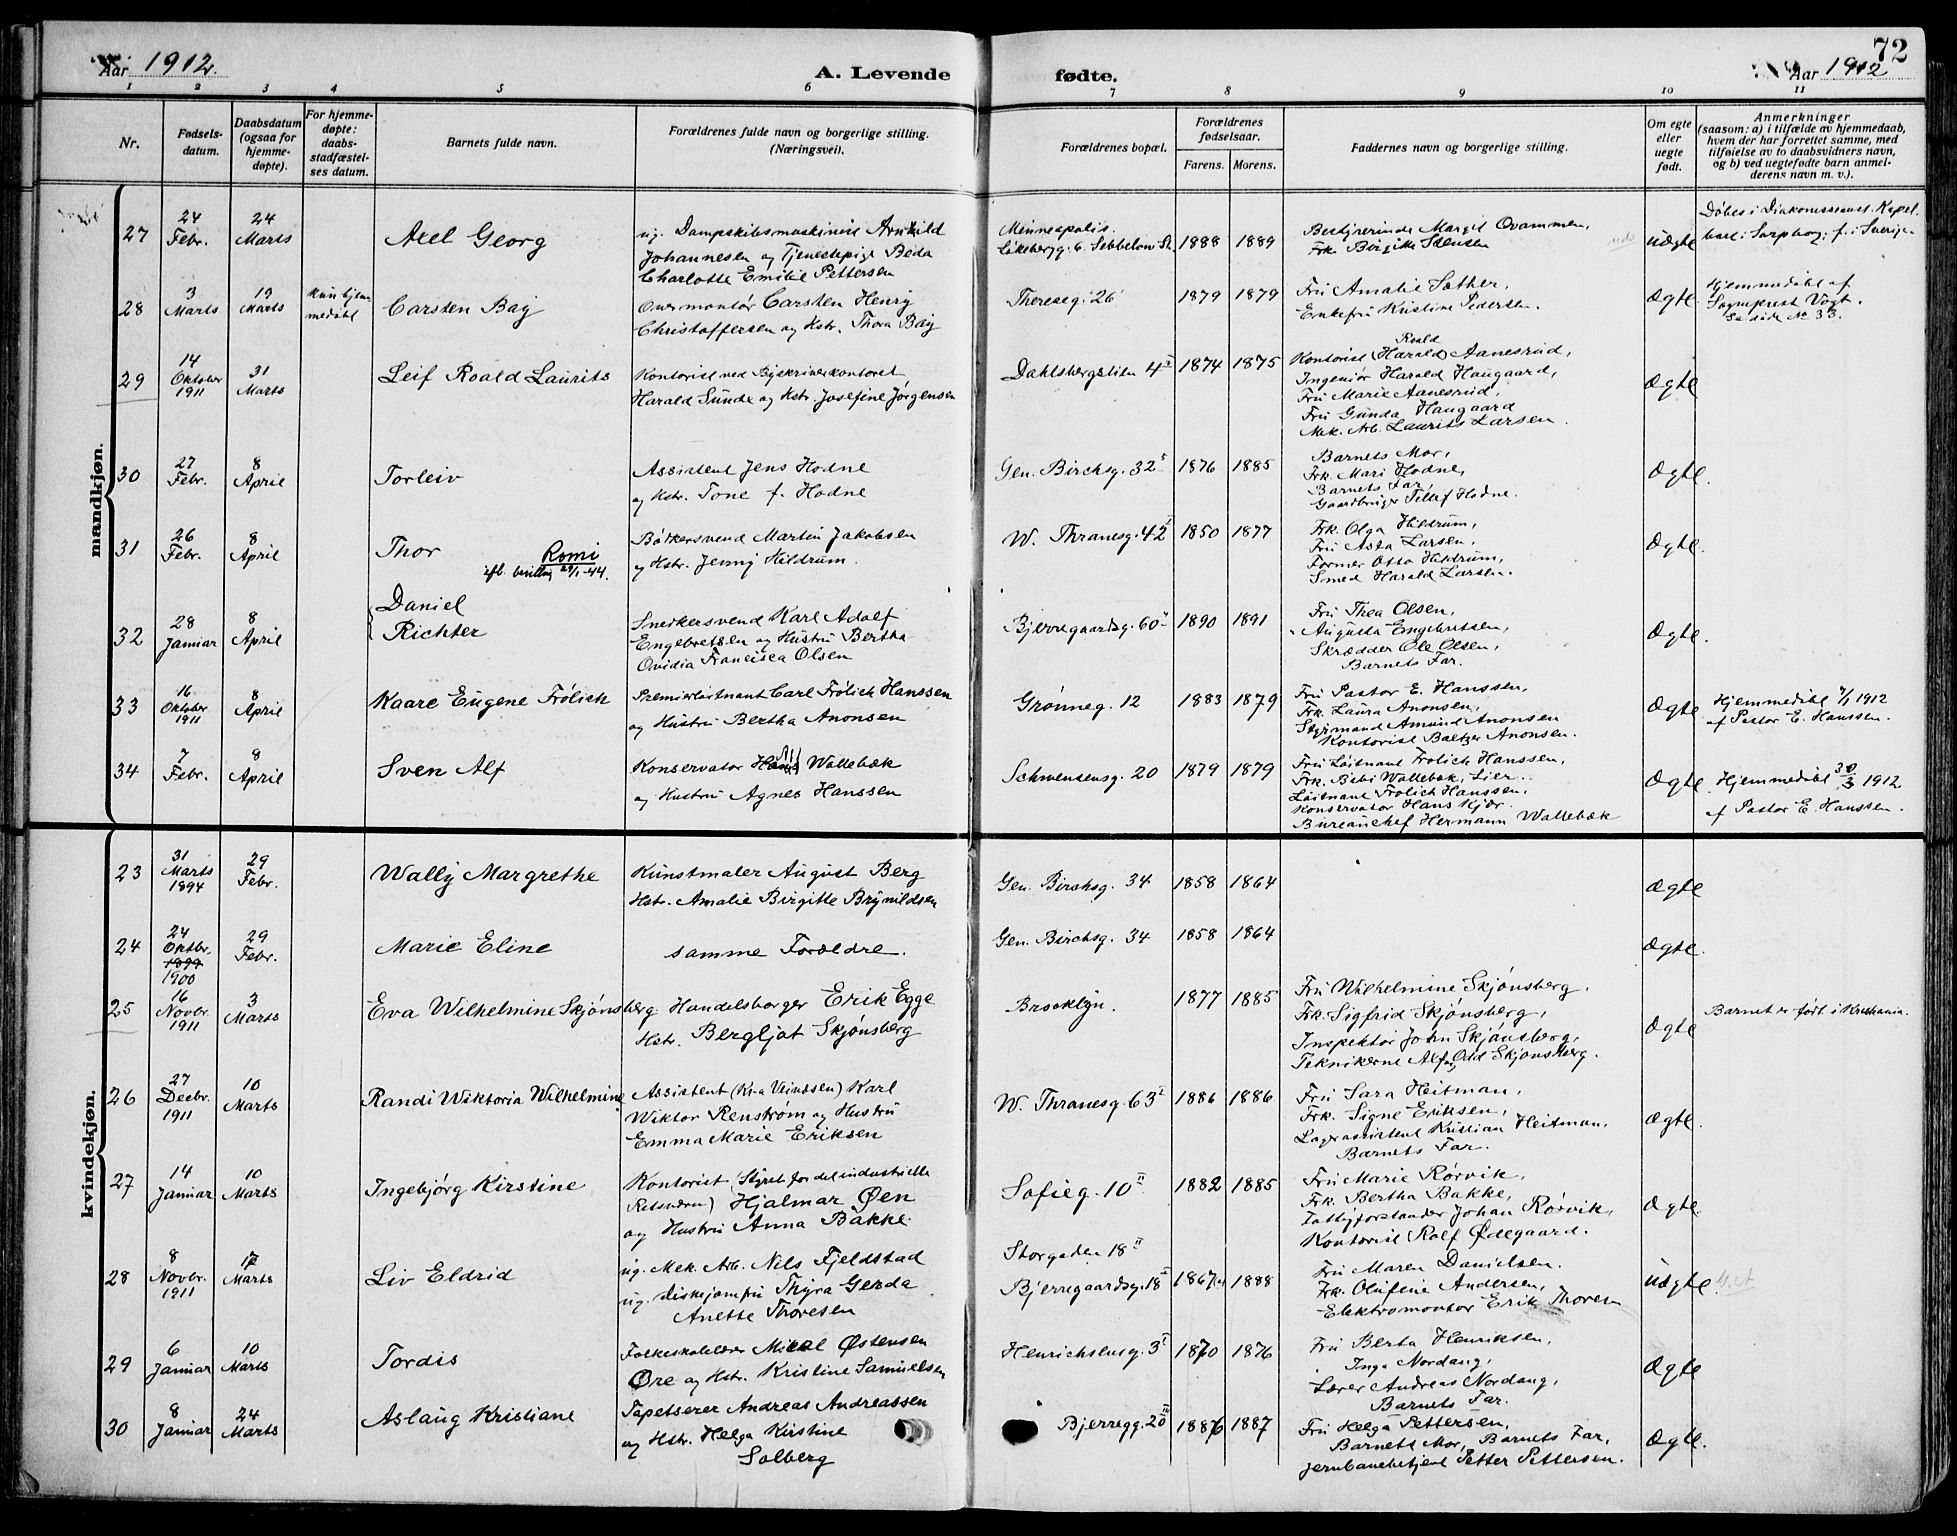 Aar 1912.
A. Levende fødte.
Aar 1912
72
1 2 3 4 5 6 7 8 9 10 11
Nr.
Fødsels-
datum.
Daabsdatum
(ogsaa for
hjemme-
døpte).
For hjemme-
døpte:
daabs-
stadfæstel-
ses datum.
Barnets fulde navn.
Forældrenes fulde navn og borgerlige stilling.
(Næringsvei).
Forældrenes bopæl.
Forældrenes
fødselsaar.
Farens. Morens.
Faddernes navn og borgerlige stilling.
Om egte
eller
uegte
født.
Anmerkninger
(saasom: a) i tilfælde av hjemmedaab,
hvem der har forrettet samme, med
tilføielse av to daabsvidners navn,
og b) ved uegtefødte barn anmel-
derens navn m. v.).
mandkjøn.
27
24
Febr.
24
Marts
Axel Georg
ug. Dampskibsmaskinist Arnhild
Johannesen og Tjenestepige Beda
Charlotte Emilie Pettersen
Minneapolis.
1888 1889
Bestyrerinde Margit Ovammen,
Frk. Birgitte Sørensen
uægte
Døbes i Diakonissenst. Kapel.
28
3
Marts
19
Marts
Kun hjem-
medøbt
Carsten Bay
Overmontør Carsten Henry
Christoffersen og Hstr. Thora Bay
Thereseg. 26
1879 1879
Fru Amalie Sæther,
Enkefru Kristine Pedersen.
Ægte
Hjemmedøbt af
Sogneprest Vogt.
Se side No 33.
29
14
Oktober
1911
31
Marts
Leif Roald Laurits
Kontorist ved Byskriverkontoret
Harald Sunde og Hstr. Josefine Jørgensen
Dahlsbergstien 4 I
1874 1875
Roald
Kontorist (Harald) Aanesrud,
Ingeniør Harald Haugaard,
Fru Marie Aanesrud,
Fru Gunda Haugaard
Mek. Arb. Laurits Larsen.
Ægte
30
27
Febr.
8
April
Torleiv
Assistent Jens Hodne
og Hstr. Tone f. Hodne
Gen. Birchsg. 32 I
1876 1885
Barnets Mor,
Frk. Mari Hodne,
Barnets Far,
Gaardbruger Tellef Hodne.
Ægte.
31
26
Febr.
8
April
Thor
Romi
efb. bevilling 29/1-44.
Bøtkersvend Martin Jakobsen
og Hstr. Jenny Hildrum.
W. Thranesg. 42 I
1850 1877
Frk. Olga Hildrum,
Fru Asta Larsen,
Former Otto Hildrum,
Smed Harald Larsen.
Ægte.
32
28
Januar
8
April
Daniel
Richter
Snedkersvend Karl Adolf
Engebretsen og Hustru Bertha
Ovidia Francisca Olsen
Bjerregaardsg. 60 II
1890 1891
Fru Thea Olsen,
" Augusta Engebretsen,
Skrædder Ole Olsen,
Barnets Far.
Ægte.
33
16
Oktober
1911
8
April
Kaare Eugene Frölich
Premierløitnant Carl Frölich Hanssen
og Hustru Bertha Anonsen
Grønneg. 12
1883 1879
Fru Pastor E. Hanssen,
Frk. Laura Anonsen,
Styrmand Amund Anonsen
Kontorist Baltzer Anonsen.
Ægte
Hjemmedøbt 7/1 1912
af Pastor E. Hanssen.
34
7
Febr.
8
April
Sven Alf
Konservator Hans Wallebæk
og Hustru Agnes Hanssen
Schwensensg. 20
1879 1879
Fru Løitnant Frölich Hanssen,
Frk. Bibi Wallebæk, Lier.
Løitnant Frölich Hanssen,
Konservator Hans Kjær.
Bureauchef Hermann Wallebæk
Ægte
Hjemmedøbt 30/3 1912
af Pastor E. Hanssen.
kvindekjøn.
23
31
Marts
1894
29
Febr.
Wally Margrethe
Kunstmaler August Berg
Hstr. Amalie Birgitte Brynildsen
Gen. Birchsg. 34
1858 1864
Ægte
24
24
Oktbr.
1899
1900
29
Febr.
Marie Eline
samme Forældre.
Gen. Birchsg. 34
1858 1864
Ægte.
25
16
Novbr.
1911
3
Marts
Eva Wilhelmine Skjønsberg
Handelsborger Erik Egge
Hstr. Bergljot Skjønsberg
Brooklyn.
1877 1885
Fru Wilhelmine Skjønsberg,
Frk. Sigfrid Skjønsberg,
Inspektør John Skjønsberg,
Teknikerne Alf og Odd Skjønsberg.
Ægte
Barnet er født i Kristiania.
26
27
Decbr.
1911
10
Marts
Randi Wiktoria Wilhelmine
Assistent Karl
Wiktor Renstrøm og Hustru
Emma Marie Eriksen
W. Thranesg. 63 I
1886 1886
Fru Sara Heitman,
Frk. Signe Eriksen,
Lagerassistent Kristian Heitman,
Barnets Far.
Ægte.
27
14
Januar
10
Marts
Ingebjørg Kirstine
Kontorist (Styret for det industrielle
Retsværn) Hjalmar Øen
og Hustru Anna Bakke.
Sofieg. 10 II
1882 1885
Fru Marie Rørvik,
Frk. Bertha Bakke,
Fattigforstander Johan Rørvik,
Kontorist Rolf Ødegaard.
Ægte
28
8
Novbr.
1911
17
Marts
Liv Eldrid
ug. Mek. Arb. Nils Fjeldstad
ug. Diskejomfru Thyra Gerda
Anette Thoresen
Storgaden 18 II
Bjerregaardsg. 18 I
1867 1888
Fru Maren Danielsen.
Frk. Olufine Andersen,
Elektromontør Erik Thoresen
uægte
29
6
Januar
10
Marts
Tordis
Folkeskolelærer Mikal Østensen
Øre og Hstr. Kristine Samuelsen
Henrichsensg. 3 I
1870 1876
Fru Berta Henriksen,
" Inga Nordang,
Lærer Andreas Nordang,
Barnets Far.
Ægte
30
8
Januar
24
Marts
Aslaug Kristiane
Tapetserer Andreas Andreassen
og Hstr. Helga Kirstine
Solberg
Bjerregg. 20 III
1886 1887
Fru Helga Pettersen,
Barnets Mor, Barnets Far,
Jernbanebetjent Petter Pettersen.
Ægte.